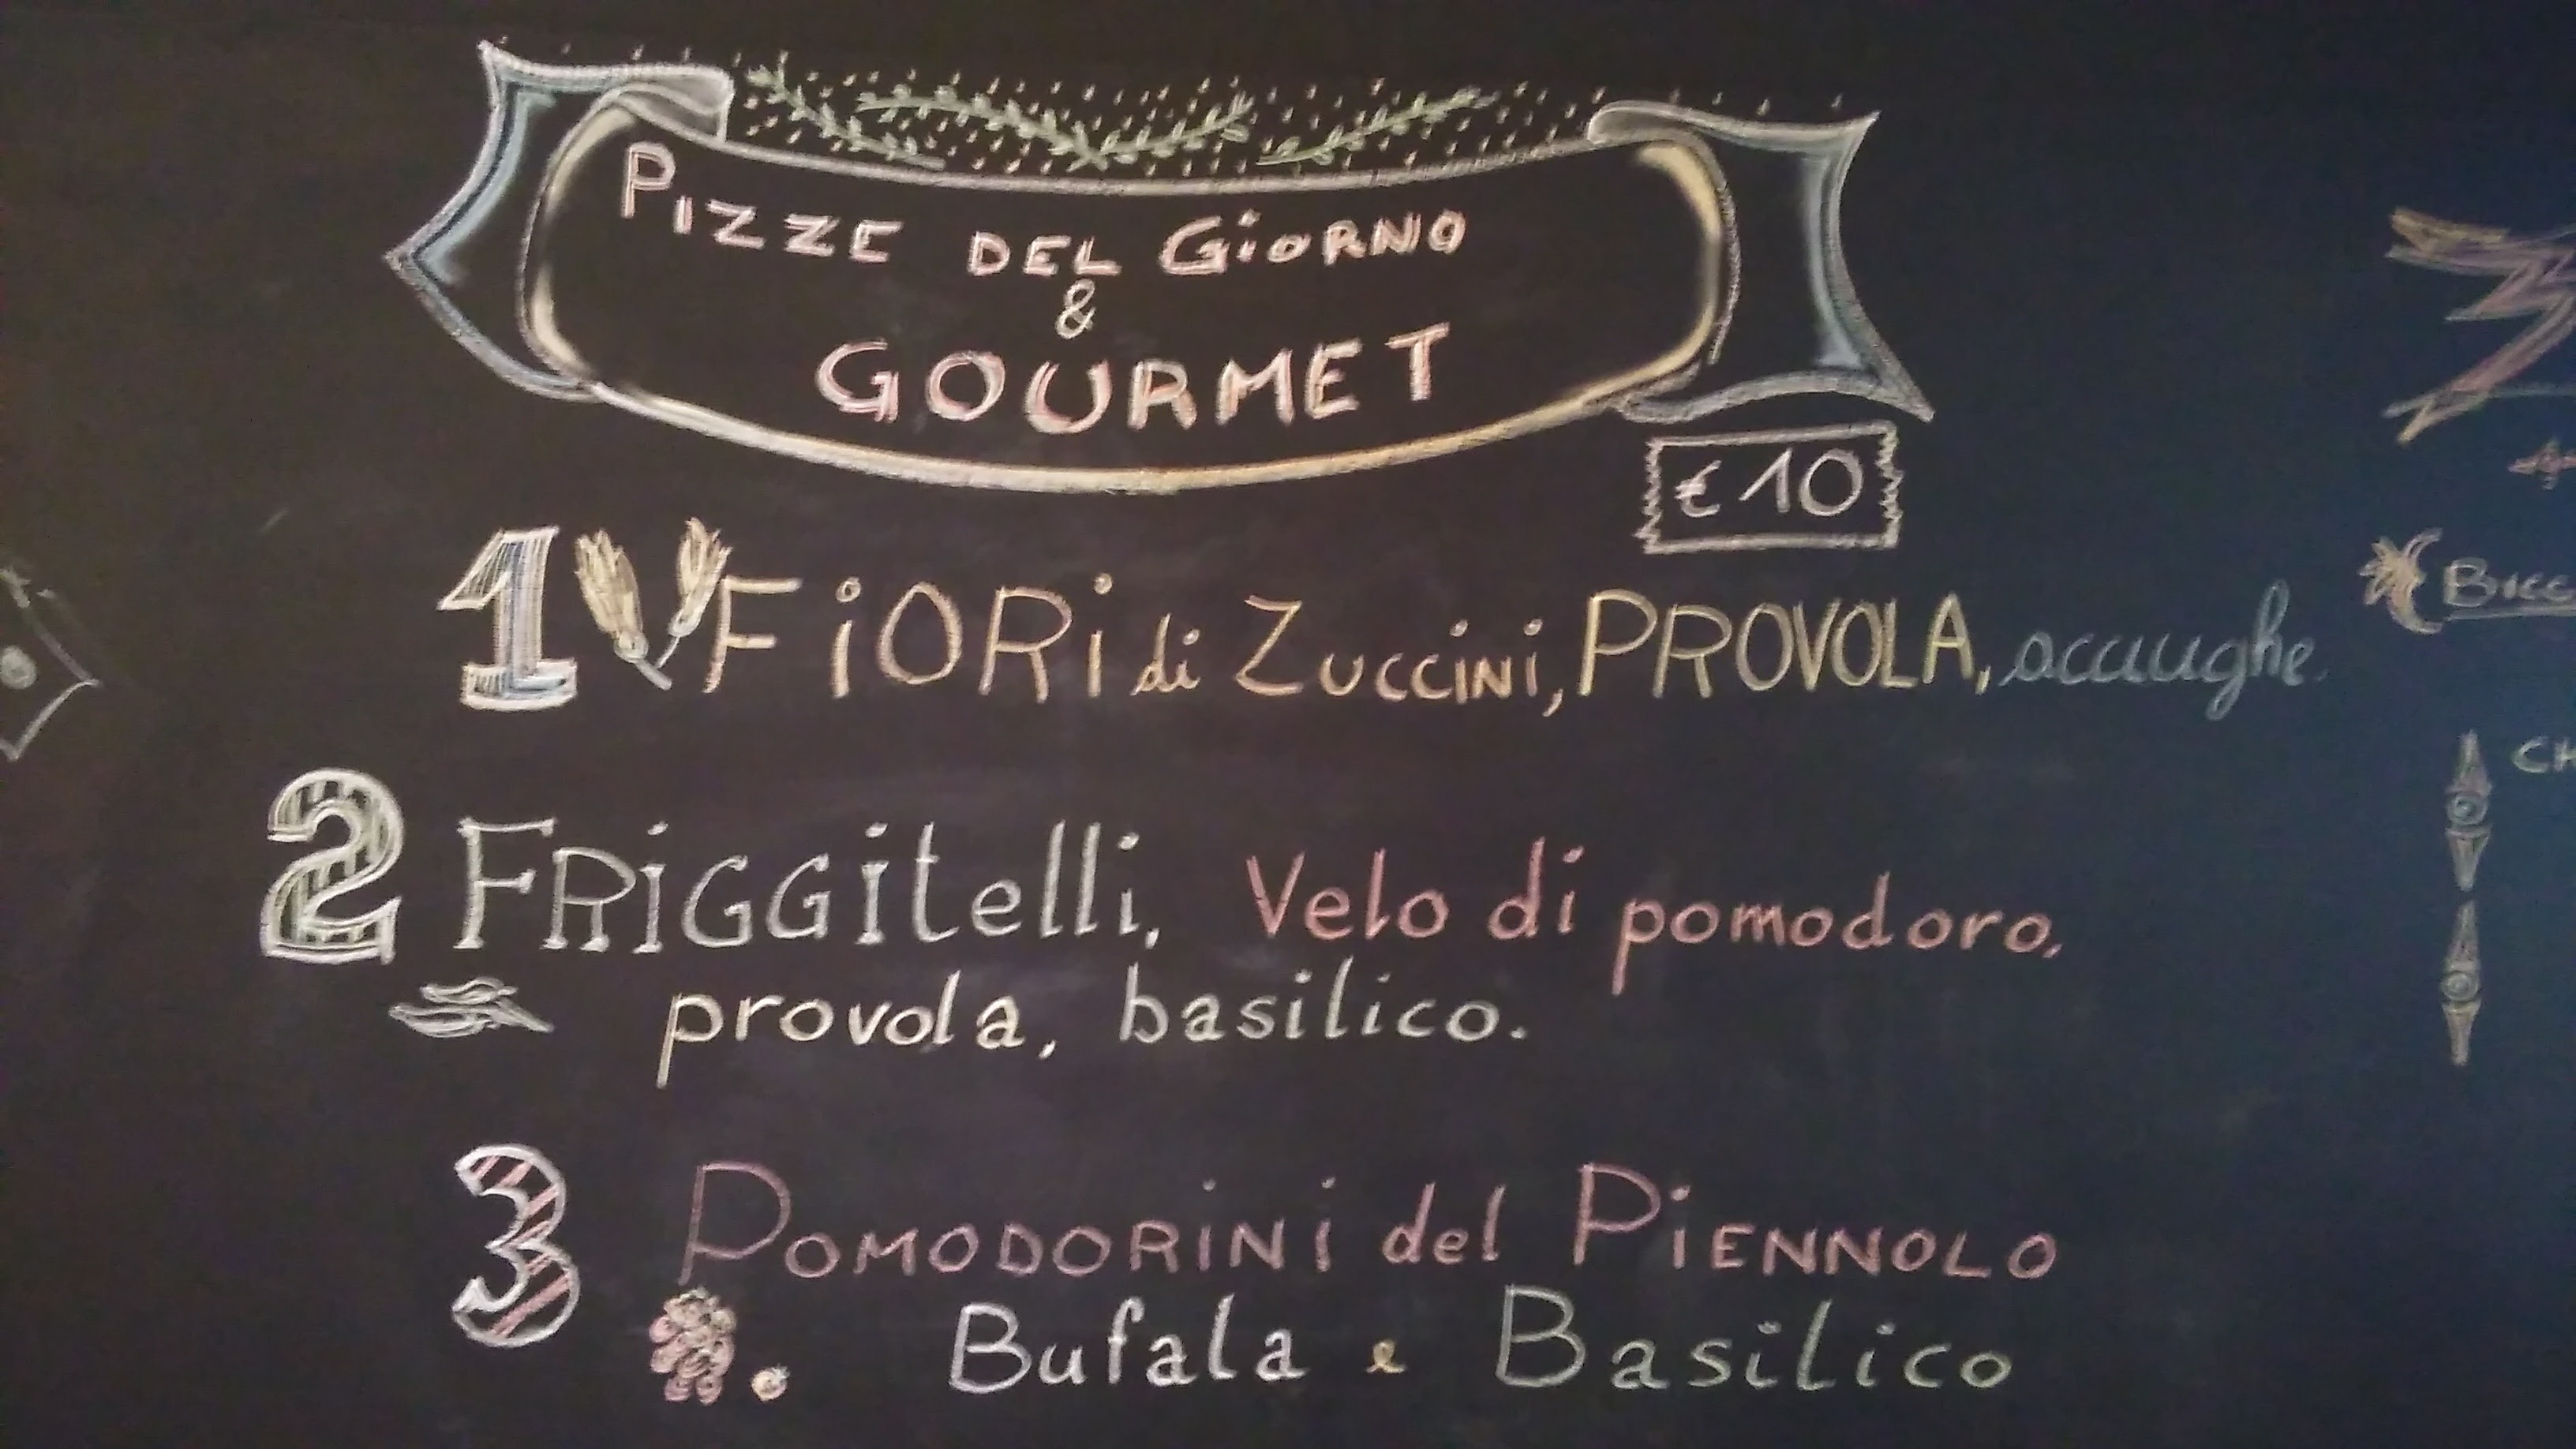 PIZZE DEL GiORNO
&
GOURMET
€ 10
1 FiORi di ZUCCINI, PROVOLA, acciughe.
2 FRIGGItelli, Velo di pomodoro,
provola, basilico.
3 POMODORINI del PIENNOLO
Bufala e Basilico